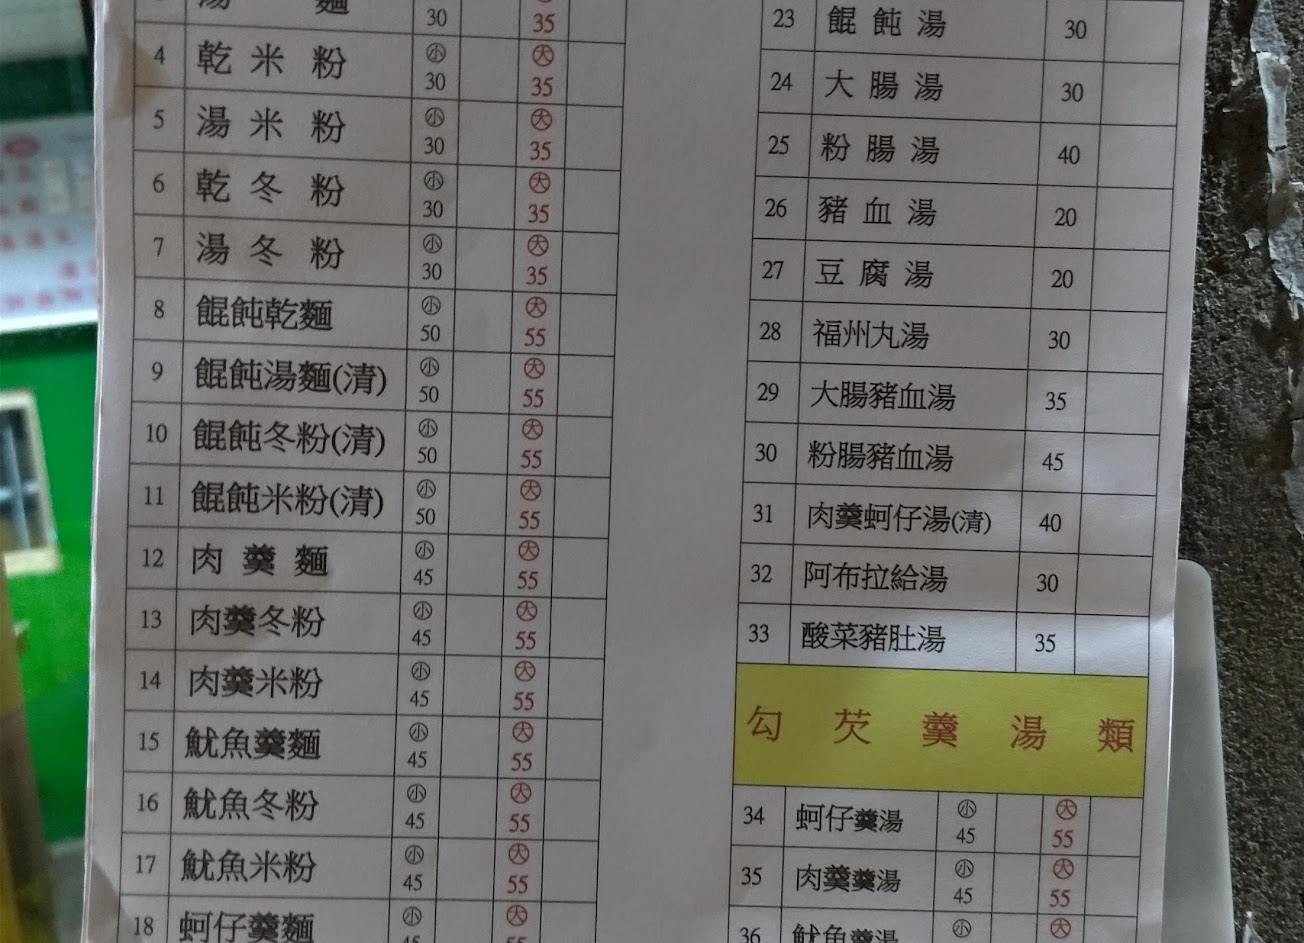 湯 麵 30 35
4 乾米粉 小 30 大 35
5 湯米粉 小 30 大 35
6 乾冬粉 小 30 大 35
7 湯冬粉 小 30 大 35
8 餛飩乾麵 小 50 大 55
9 餛飩湯麵(清) 小 50 大 55
10 餛飩冬粉(清) 小 50 大 55
11 餛飩米粉(清) 小 50 大 55
12 肉羹麵 小 45 大 55
13 肉羹冬粉 小 45 大 55
14 肉羹米粉 小 45 大 55
15 魷魚羹麵 小 45 大 55
16 魷魚冬粉 小 45 大 55
17 魷魚米粉 小 45 大 55
18 蚵仔羹麵 小 45 大 55
23 餛飩湯 30
24 大腸湯 30
25 粉腸湯 40
26 豬血湯 20
27 豆腐湯 20
28 福州丸湯 30
29 大腸豬血湯 35
30 粉腸豬血湯 45
31 肉羹蚵仔湯(清) 40
32 阿布拉給湯 30
33 酸菜豬肚湯 35
勾芡羹湯類
34 蚵仔羹湯 小 45 大 55
35 肉羹羹湯 小 45 大 55
36 魷魚羹湯 小 大